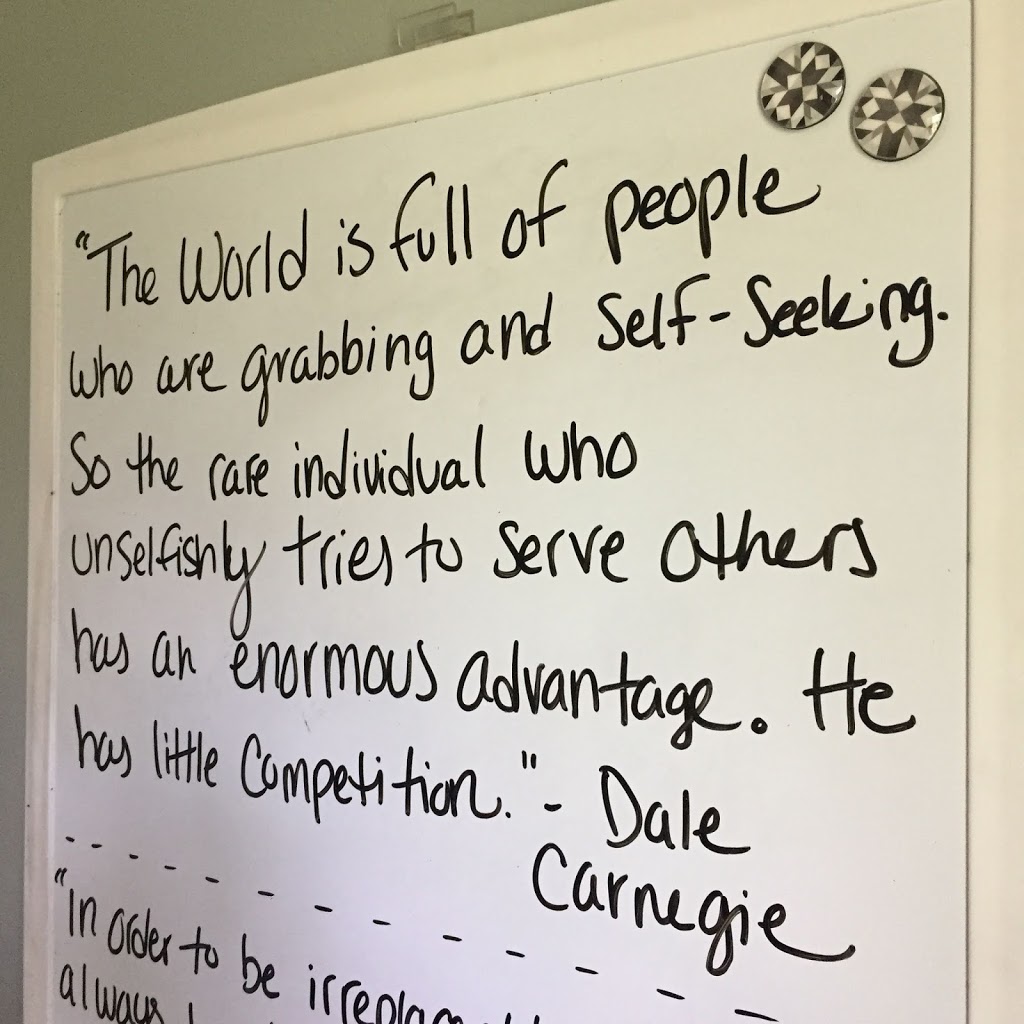 "The World is full of people
who are grabbing and self-seeking.
So the rare individual who
unselfishly tries to serve others
has an enormous advantage. He
has little competition." - Dale
Carnegie
"In order to be
always